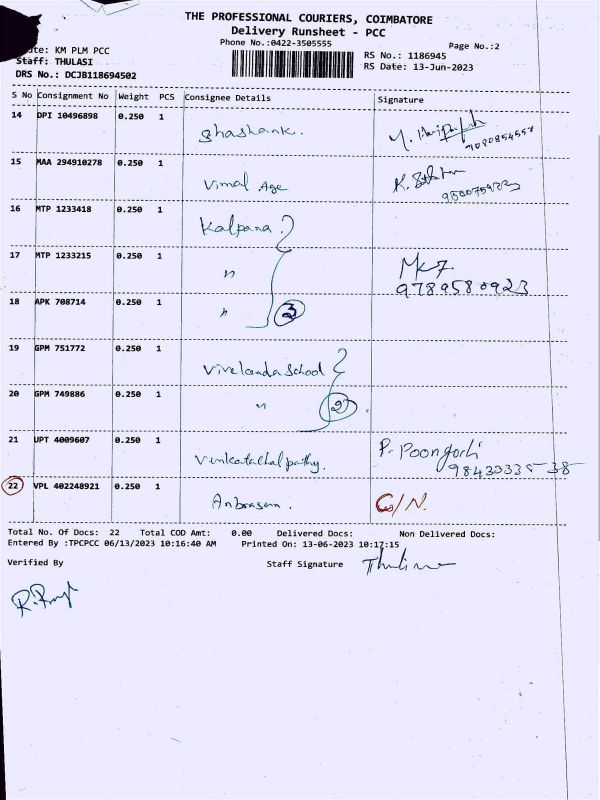 THE PROFESSIONAL COURIERS, COIMBATORE
Delivery Runsheet - PCC
Phone No.:0422-3505555
Page No.:2
KM PLM PCC
Staff: THULASI
DRS No.: DCJB118694502
RS No.: 1186945
RS Date: 13-Jun-2023
S No Consignment No Weight PCS Consignee Details Signature
14 DPI 10496898 0.250 1 Shashank.
15 MAA 294910278 0.250 1 Vimal Age K.
16 MTP 1233418 0.250 1 Kalpana
17 MTP 1233215 0.250 1 〃 9789580923
18 APK 708714 0.250 1 〃 3
19 GPM 751772 0.250 1 Vivekanda School
20 GPM 749886 0.250 1 〃 2
21 UPT 4009607 0.250 1 Venkatachalpathy. P. Poongodi
9843033538
22 VPL 402248921 0.250 1 Anbarasan.
Total No. Of Docs: 22 Total COD Amt: 0.00 Delivered Docs: Non Delivered Docs:
Entered By :TPCPCC 06/13/2023 10:16:40 AM Printed On: 13-06-2023 10:17:15
Verified By Staff Signature